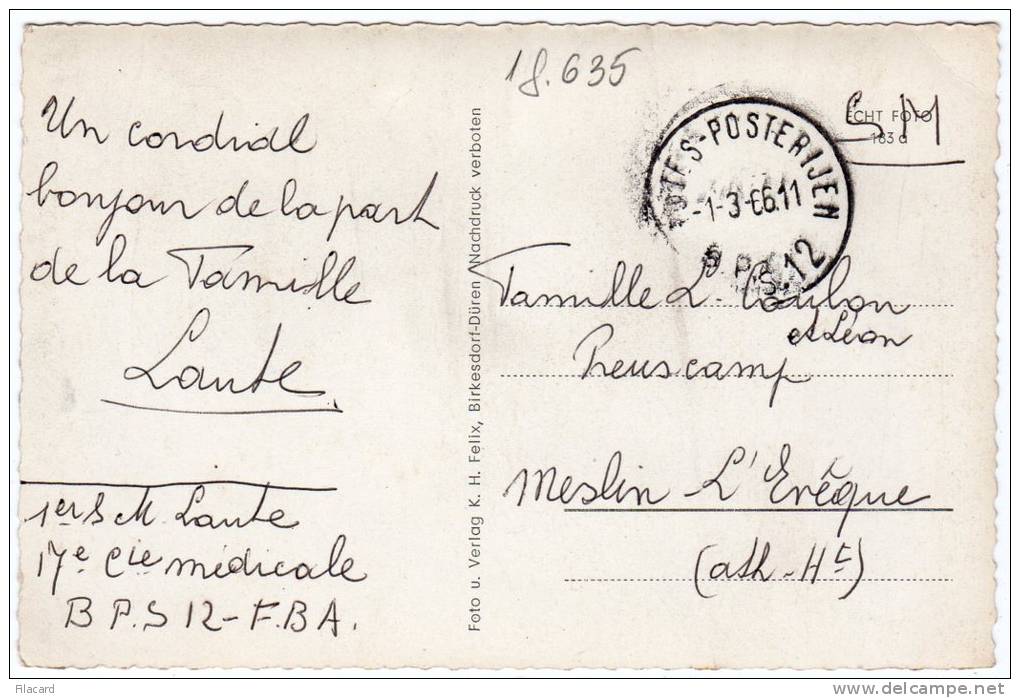 18.635
Un cordial
bonjour de la part
de la Famille
Laute
1er S M. Laute
17e Cie médicale
B P.S 12 - F.B.A.
Foto u. Verlag K. H. Felix, Birkesdorf-Düren / Nachdruck verboten
S M
ECHT FOTO
183 d
POSTES-POSTERIJEN
-1-3-66.11
B.P.S.12
Famille L. Coulon
et Léon
Preuscamp
Meslin L'Evêque
(ath - Ht)
Filacard
delcampe.net